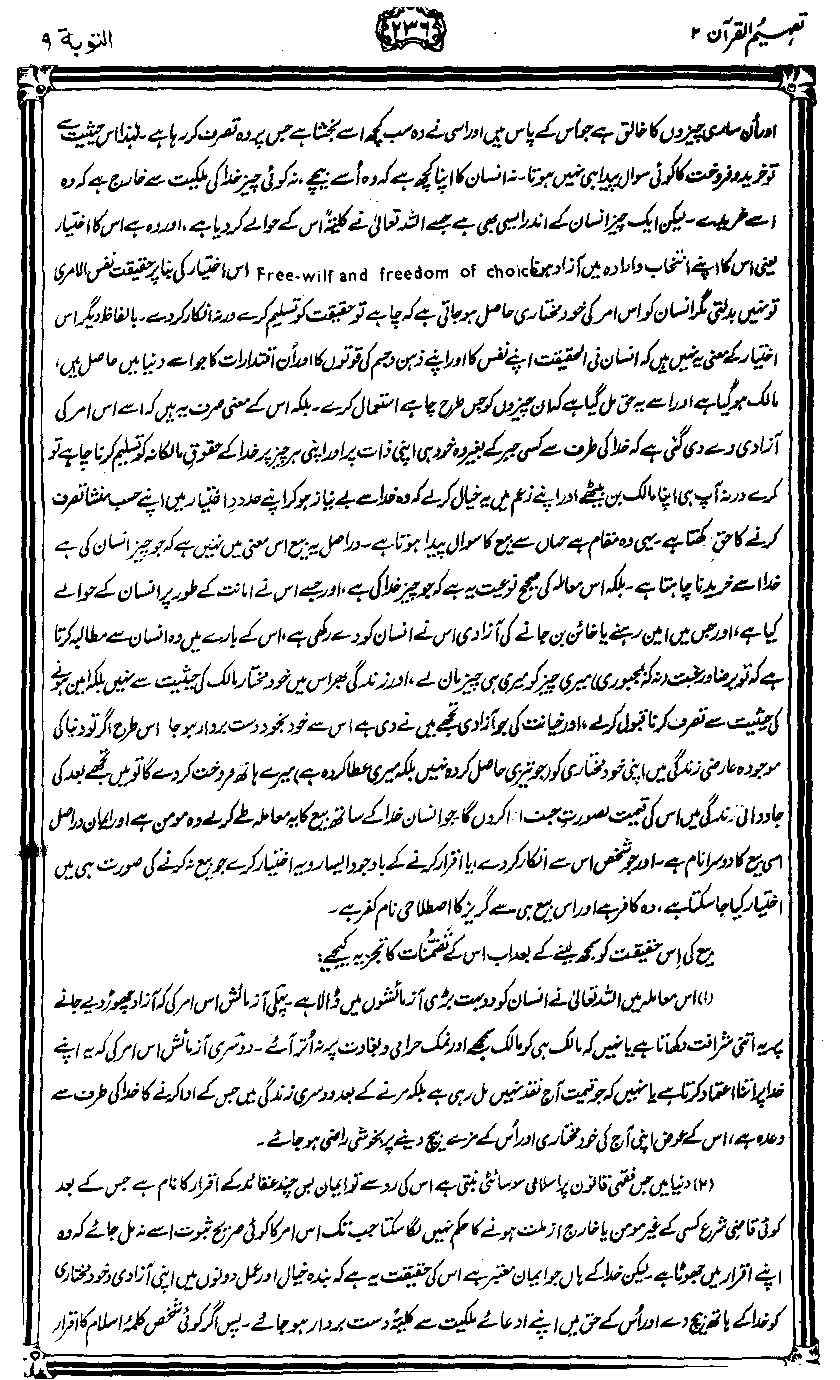 تفہیم القرآن ۲
۲۳۶
التوبۃ ۹
اور اُن ساری چیزوں کا خالق ہے جو اس کے پاس ہیں اور اسی نے وہ سب کچھ اسے بخشا ہے جس پر وہ تصرف کر رہا ہے۔ لہٰذا اس حیثیت سے
تو خرید و فروخت کا کوئی سوال پیدا ہی نہیں ہوتا۔ نہ انسان کا اپنا کچھ ہے کہ وہ اُسے بیچے، نہ کوئی چیز خدا کی ملکیت سے خارج ہے کہ وہ
اسے خریدے۔ لیکن ایک چیز انسان کے اندر ایسی بھی ہے جسے اللہ تعالیٰ نے کلیۃً اس کے حوالے کر دیا ہے، اور وہ ہے اس کا اختیار
یعنی اس کا اپنے انتخاب و ارادہ میں آزاد ہونا Free-wilf and freedom of choic اس اختیار کی بنا پر حقیقت نفس الامری
تو نہیں بدلتی مگر انسان کو اس امر کی خود مختاری حاصل ہو جاتی ہے کہ چاہے تو حقیقت کو تسلیم کرے ورنہ انکار کر دے۔ بالفاظ دیگر اس
اختیار کے معنی یہ نہیں ہیں کہ انسان فی الحقیقت اپنے نفس کا اور اپنے ذہن و جسم کی قوتوں کا اور اُن اقتدارات کا جو اسے دنیا میں حاصل ہیں،
مالک ہو گیا ہے اور اسے یہ حق مل گیا ہے کہ ان چیزوں کو جس طرح چاہے استعمال کرے۔ بلکہ اس کے معنی صرف یہ ہیں کہ اسے اس امر کی
آزادی دے دی گئی ہے کہ خدا کی طرف سے کسی جبر کے بغیر وہ خود ہی اپنی ذات پر اور اپنی ہر چیز پر خدا کے حقوقِ مالکانہ کو تسلیم کرنا چاہے تو
کرے ورنہ آپ ہی اپنا مالک بن بیٹھے اور اپنے زعم میں یہ خیال کرے کہ وہ خدا سے بے نیاز ہو کر اپنے حدودِ اختیار میں اپنے حسب منشا تصرف
کرنے کا حق رکھتا ہے۔ یہی وہ مقام ہے جہاں سے بیع کا سوال پیدا ہوتا ہے۔ دراصل یہ بیع اس معنی میں نہیں ہے کہ جو چیز انسان کی ہے
خدا اسے خریدنا چاہتا ہے۔ بلکہ اس معاملہ کی صحیح نوعیت یہ ہے کہ جو چیز خدا کی ہے، اور جسے اس نے امانت کے طور پر انسان کے حوالے
کیا ہے، اور جس میں امین رہنے یا خائن بن جانے کی آزادی اس نے انسان کو دے رکھی ہے، اس کے بارے میں وہ انسان سے مطالبہ کرتا
ہے کہ تو برضا و رغبت (نہ کہ بمجبوری) میری چیز کو میری ہی چیز مان لے، اور زندگی بھر اس میں خود مختار مالک کی حیثیت سے نہیں بلکہ امین ہونے
کی حیثیت سے تصرف کرنا قبول کر لے، اور خیانت کی جو آزادی تجھے میں نے دی ہے اس سے خود بخود دست بردار ہو جا اس طرح اگر تو دنیا کی
موجودہ عارضی زندگی میں اپنی خود مختاری کو (جو تیری حاصل کردہ نہیں بلکہ میری عطا کردہ ہے) میرے ہاتھ فروخت کر دے گا تو میں تجھے بعد کی
جاودانی زندگی میں اس کی قیمت بصورتِ جنت ادا کروں گا جو انسان خدا کے ساتھ بیع کا یہ معاملہ طے کر لے وہ مومن ہے اور ایمان دراصل
اسی بیع کا دوسرا نام ہے۔ اور جو شخص اس سے انکار کر دے، یا اقرار کرنے کے باوجود ایسا رویہ اختیار کرے جو بیع نہ کرنے کی صورت ہی میں
اختیار کیا جا سکتا ہے، وہ کافر ہے اور اس بیع ہی سے گریز کا اصطلاحی نام کفر ہے۔
بیع کی اِس حقیقت کو سمجھ لینے کے بعد اب اس کے تضمُّنات کا تجزیہ کیجیے:
(۱) اس معاملہ میں اللہ تعالیٰ نے انسان کو دو بہت بڑی آزمائشوں میں ڈالا ہے۔ پہلی آزمائش اس امر کی کہ آزاد چھوڑ دیے جانے
پر یہ اتنی شرافت دکھاتا ہے یا نہیں کہ مالک ہی کو مالک سمجھے اور نمک حرامی و بغاوت پر نہ اُتر آئے۔ دوسری آزمائش اس امر کی کہ یہ اپنے
خدا پر اتنا اعتماد کرتا ہے یا نہیں کہ جو قیمت آج نقد نہیں مل رہی ہے بلکہ مرنے کے بعد دوسری زندگی میں جس کے ادا کرنے کا خدا کی طرف سے
وعدہ ہے، اس کے عوض اپنی آج کی خود مختاری اور اُس کے مزے بیچ دینے پر بخوشی راضی ہو جائے۔
(۲) دنیا میں جس فقہی قانون پر اسلامی سوسائٹی بنتی ہے اس کی رو سے تو ایمان بس چند عقائد کے اقرار کا نام ہے جس کے بعد
کوئی قاضیِ شرع کسی کے غیر مومن یا خارج از ملت ہونے کا حکم نہیں لگا سکتا جب تک اس امر کا کوئی صریح ثبوت اسے نہ مل جائے کہ وہ
اپنے اقرار میں جھوٹا ہے۔ لیکن خدا کے ہاں جو ایمان معتبر ہے اس کی حقیقت یہ ہے کہ بندہ خیال اور عمل دونوں میں اپنی آزادی و خود مختاری
کو خدا کے ہاتھ بیچ دے اور اُس کے حق میں اپنے ادعائے ملکیت سے کلیۃً دست بردار ہو جائے۔ پس اگر کوئی شخص کلمۂ اسلام کا اقرار